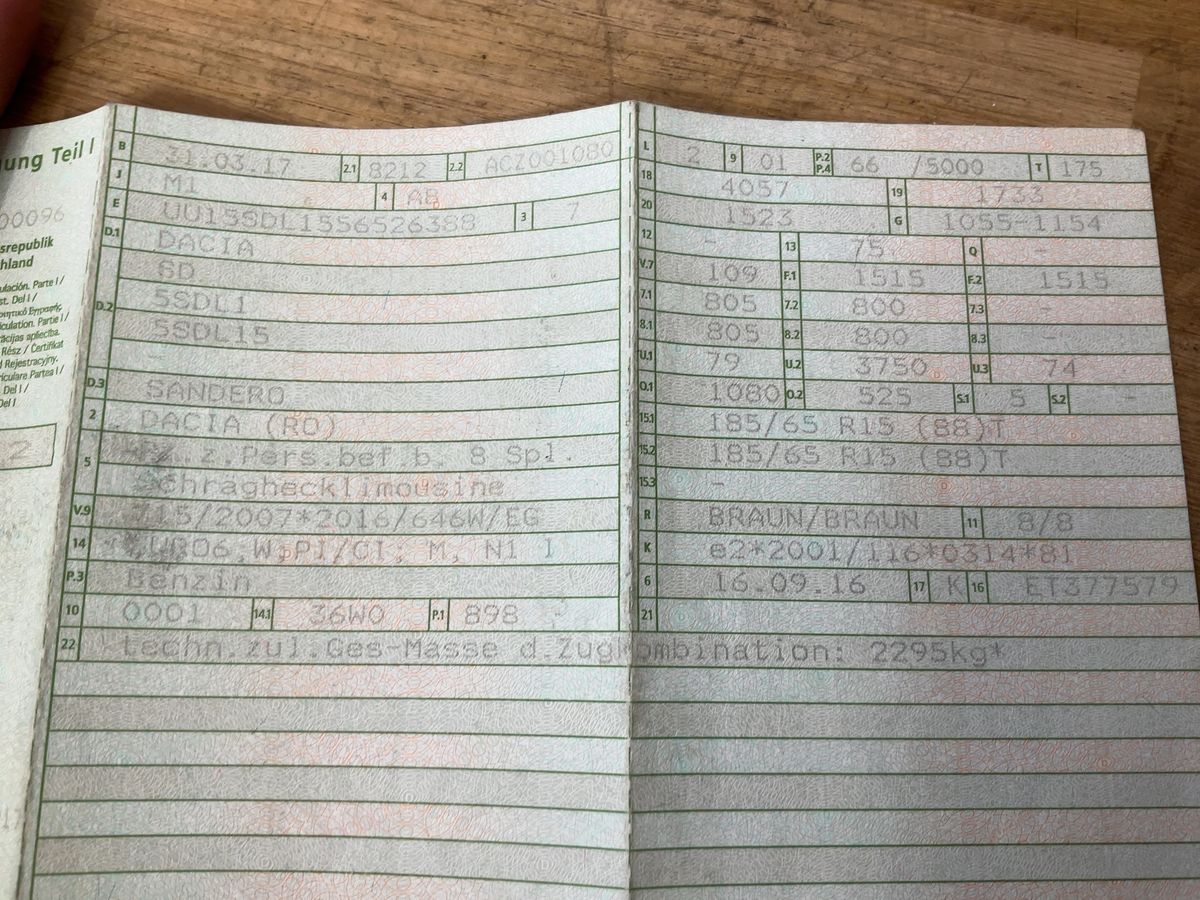 ung Teil I
00096
srepublik
hland
ulación. Parte I /
st. Del I /
iculation. Partie I /
rācijas apliecība.
Rész / Certifikat
d Rejestracyjny.
riculare Partea I /
Del I /
Del I
2
B 31.03.17 2.1 8212 2.2 ACZ001080
J M1 4 AB
E UU15SDL1556526388 3 7
D.1 DACIA
SD
D.2 5SDL1
5SDL15
-
D.3 SANDERO
2 DACIA (RO)
5 Fz.z.Pers.bef.b. 8 Spl.
Schräghecklimousine
V.9 715/2007*2016/646W/EG
14 EURO6;W;PI/CI; M, N1 I
P.3 Benzin
10 0001 14.1 36W0 P.1 898
22 techn.zul.Ges-Masse d.Zugkombination: 2295kg*
L 2 9 01 P.2 P.4 66 /5000 T 175
18 4057 19 1733
20 1523 G 1055-1154
12 - 13 75 Q -
V.7 109 F.1 1515 F.2 1515
7.1 805 7.2 800 7.3 -
8.1 805 8.2 800 8.3 -
U.1 79 U.2 3750 U.3 74
O.1 1080 O.2 525 S.1 5 S.2 -
15.1 185/65 R15 (88)T
15.2 185/65 R15 (88)T
15.3 -
R BRAUN/BRAUN 11 8/8
K e2*2001/116*0314*81
6 16.09.16 17 K 16 ET377579
21